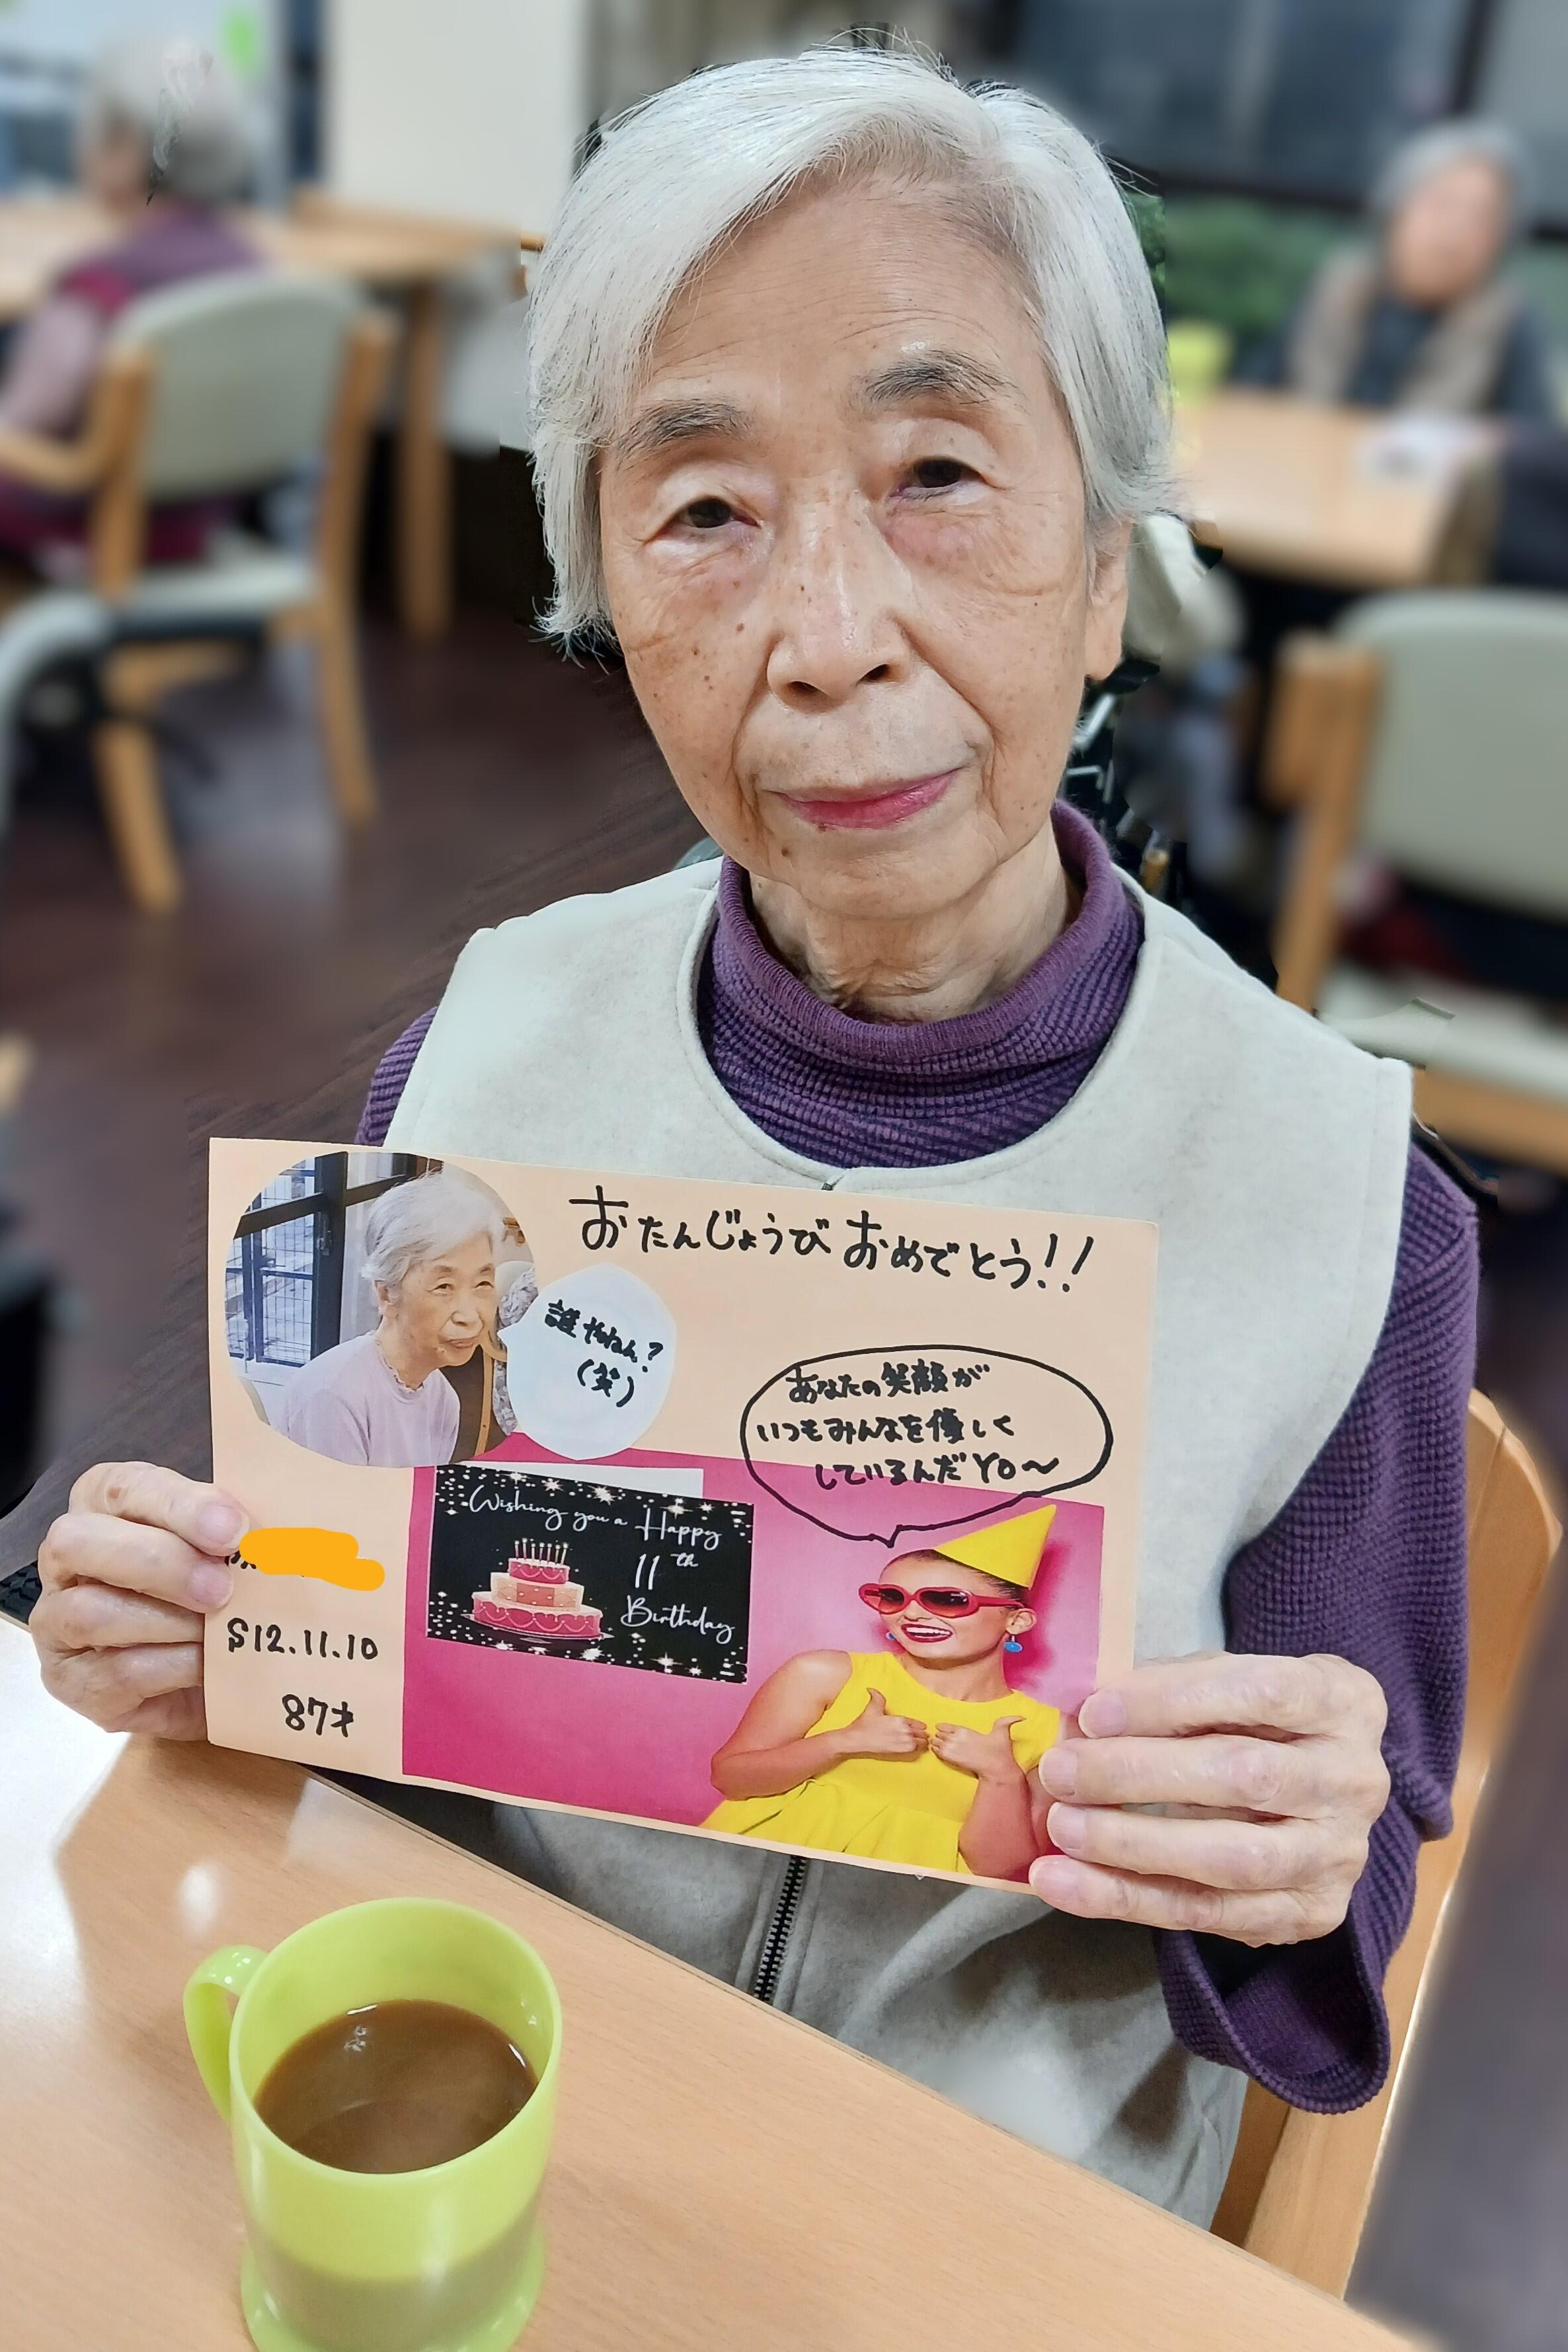 おたんじょうび おめでとう!!
誰やねん?
(笑)
あなたの笑顔が
いつもみんなを優しく
しているんだYO〜
Wishing you a Happy
11th
Birthday
S12.11.10
87才